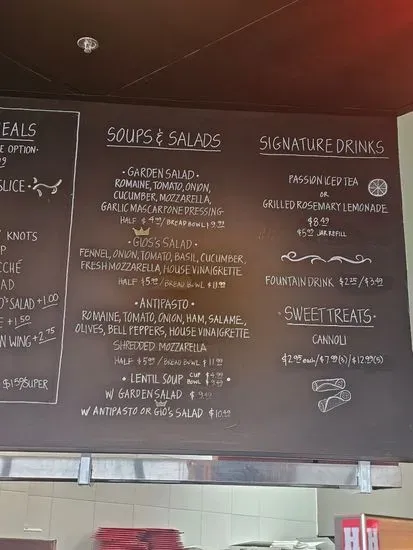 EALS
E OPTION·
SLICE
KNOTS
P
CCHÉ
AD
O'S SALAD +1.00
E +1.50
N WING +2.75
$1.59 SUPER
SOUPS & SALADS
· GARDEN SALAD ·
ROMAINE, TOMATO, ONION,
CUCUMBER, MOZZARELLA,
GARLIC MASCARPONE DRESSING
HALF $4.99/BREAD BOWL $9.99
· GIO'S SALAD ·
FENNEL, ONION, TOMATO, BASIL, CUCUMBER,
FRESH MOZZARELLA, HOUSE VINAIGRETTE
HALF $5.99/BREAD BOWL $11.99
· ANTIPASTO ·
ROMAINE, TOMATO, ONION, HAM, SALAME,
OLIVES, BELL PEPPERS, HOUSE VINAIGRETTE
SHREDDED MOZZARELLA
HALF $5.99/BREAD BOWL $11.99
· LENTIL SOUP CUP $4.99 BOWL ·
W/ GARDEN SALAD $9.49
W/ ANTIPASTO OR GIO'S SALAD $10.49
SIGNATURE DRINKS
PASSION ICED TEA
OR
GRILLED ROSEMARY LEMONADE
$8.49
$5.00 JAR REFILL
FOUNTAIN DRINK $2.75/$3.49
· SWEET TREATS ·
CANNOLI
$2.95 each/$7.99(3)/$12.99(5)
H
H